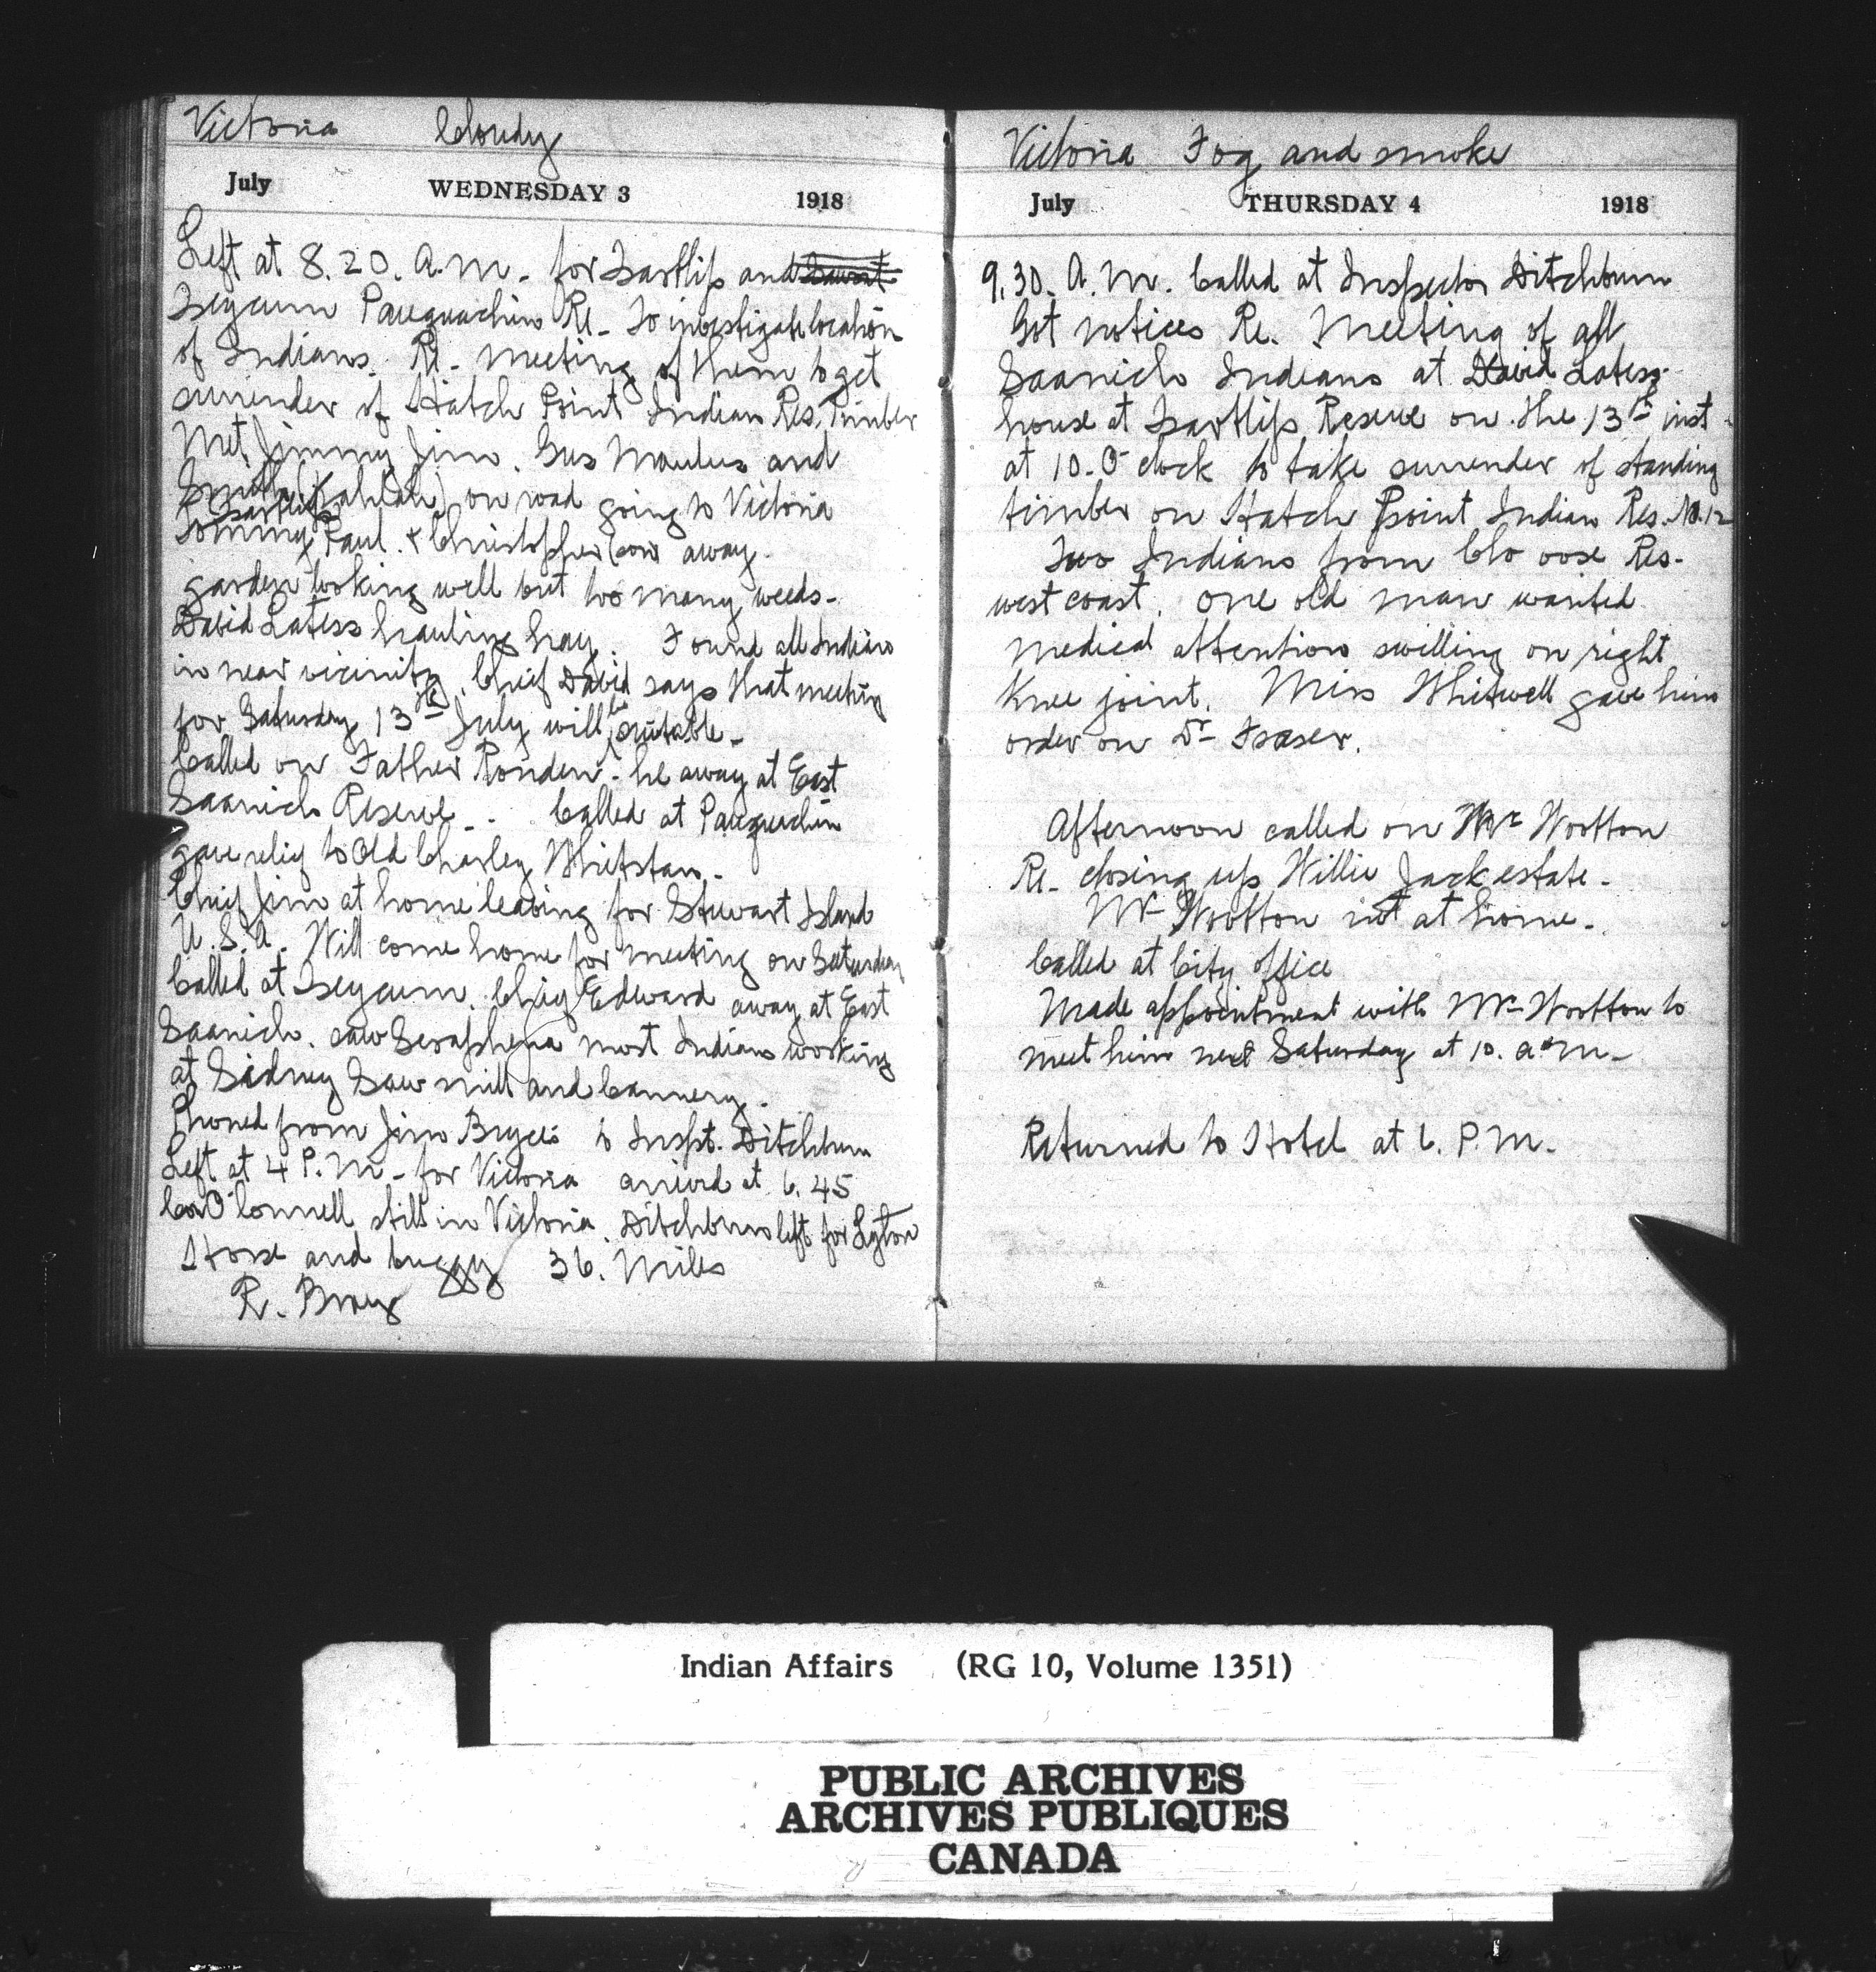 Victoria Cloudy
July WEDNESDAY 3 1918
Left at 8.20. A.M. for Tsartlip and
Tseycum Pauquachin Re. To investigate location
of Indians. Re. meeting of them to get
surrender of Hatch Point Indian Res. Timber
Met Jimmy Jim. Gus and
Smith on road going to Victoria
Tsartlip
Tommy Paul. & Christopher away.
garden looking well but too many weeds.
David Latess hauling hay. Found all Indians
in near vicinity. Chief David says that meeting
for Saturday 13th July will be suitable.
Called on Father Ronden. he away at East
Saanich Reserve. Called at Pauquachin
gave relief to Old Charley Whitstan.
Chief Jim at home leaving for Stuwart Island
U.S.A. Will come home for meeting on Saturday
Called at Tseycum. Chief Edward away at East
Saanich. saw Seraphena most Indians working
at Sidney Saw mill and Cannery.
Phoned from Jim Bryce's to Inspt. Ditchburn
Left at 4 P.M. for Victoria arrived at 6.45
Con O'Connell still in Victoria. Ditchburn left for Lyton
Horse and buggy 36. Miles
R. Bray
Victoria Fog and smoke
July THURSDAY 4 1918
9.30. A.M. Called at Inspector Ditchburn
Got notices Re. Meeting of all
Saanich Indians at David Latess
house at Tsartlip Reserve on the 13th inst.
at 10. O'clock to take surrender of standing
timber on Hatch Point Indian Res. No. 12
Two Indians from Clo oose Res.
west coast. one old man wanted
medical attention swilling on right
knee joint. Miss Whitwell gave him
order on Dr Fraser.
Afternoon called on Mr Wootton
Re. closing up Willie Jack estate.
Mr Wootton not at home.
Called at City office
Made appointment with Mr Wootton to
meet him next Saturday at 10. a.m.
Returned to Hotel at 6. P.M.
Indian Affairs (RG 10, Volume 1351)
PUBLIC ARCHIVES
ARCHIVES PUBLIQUES
CANADA